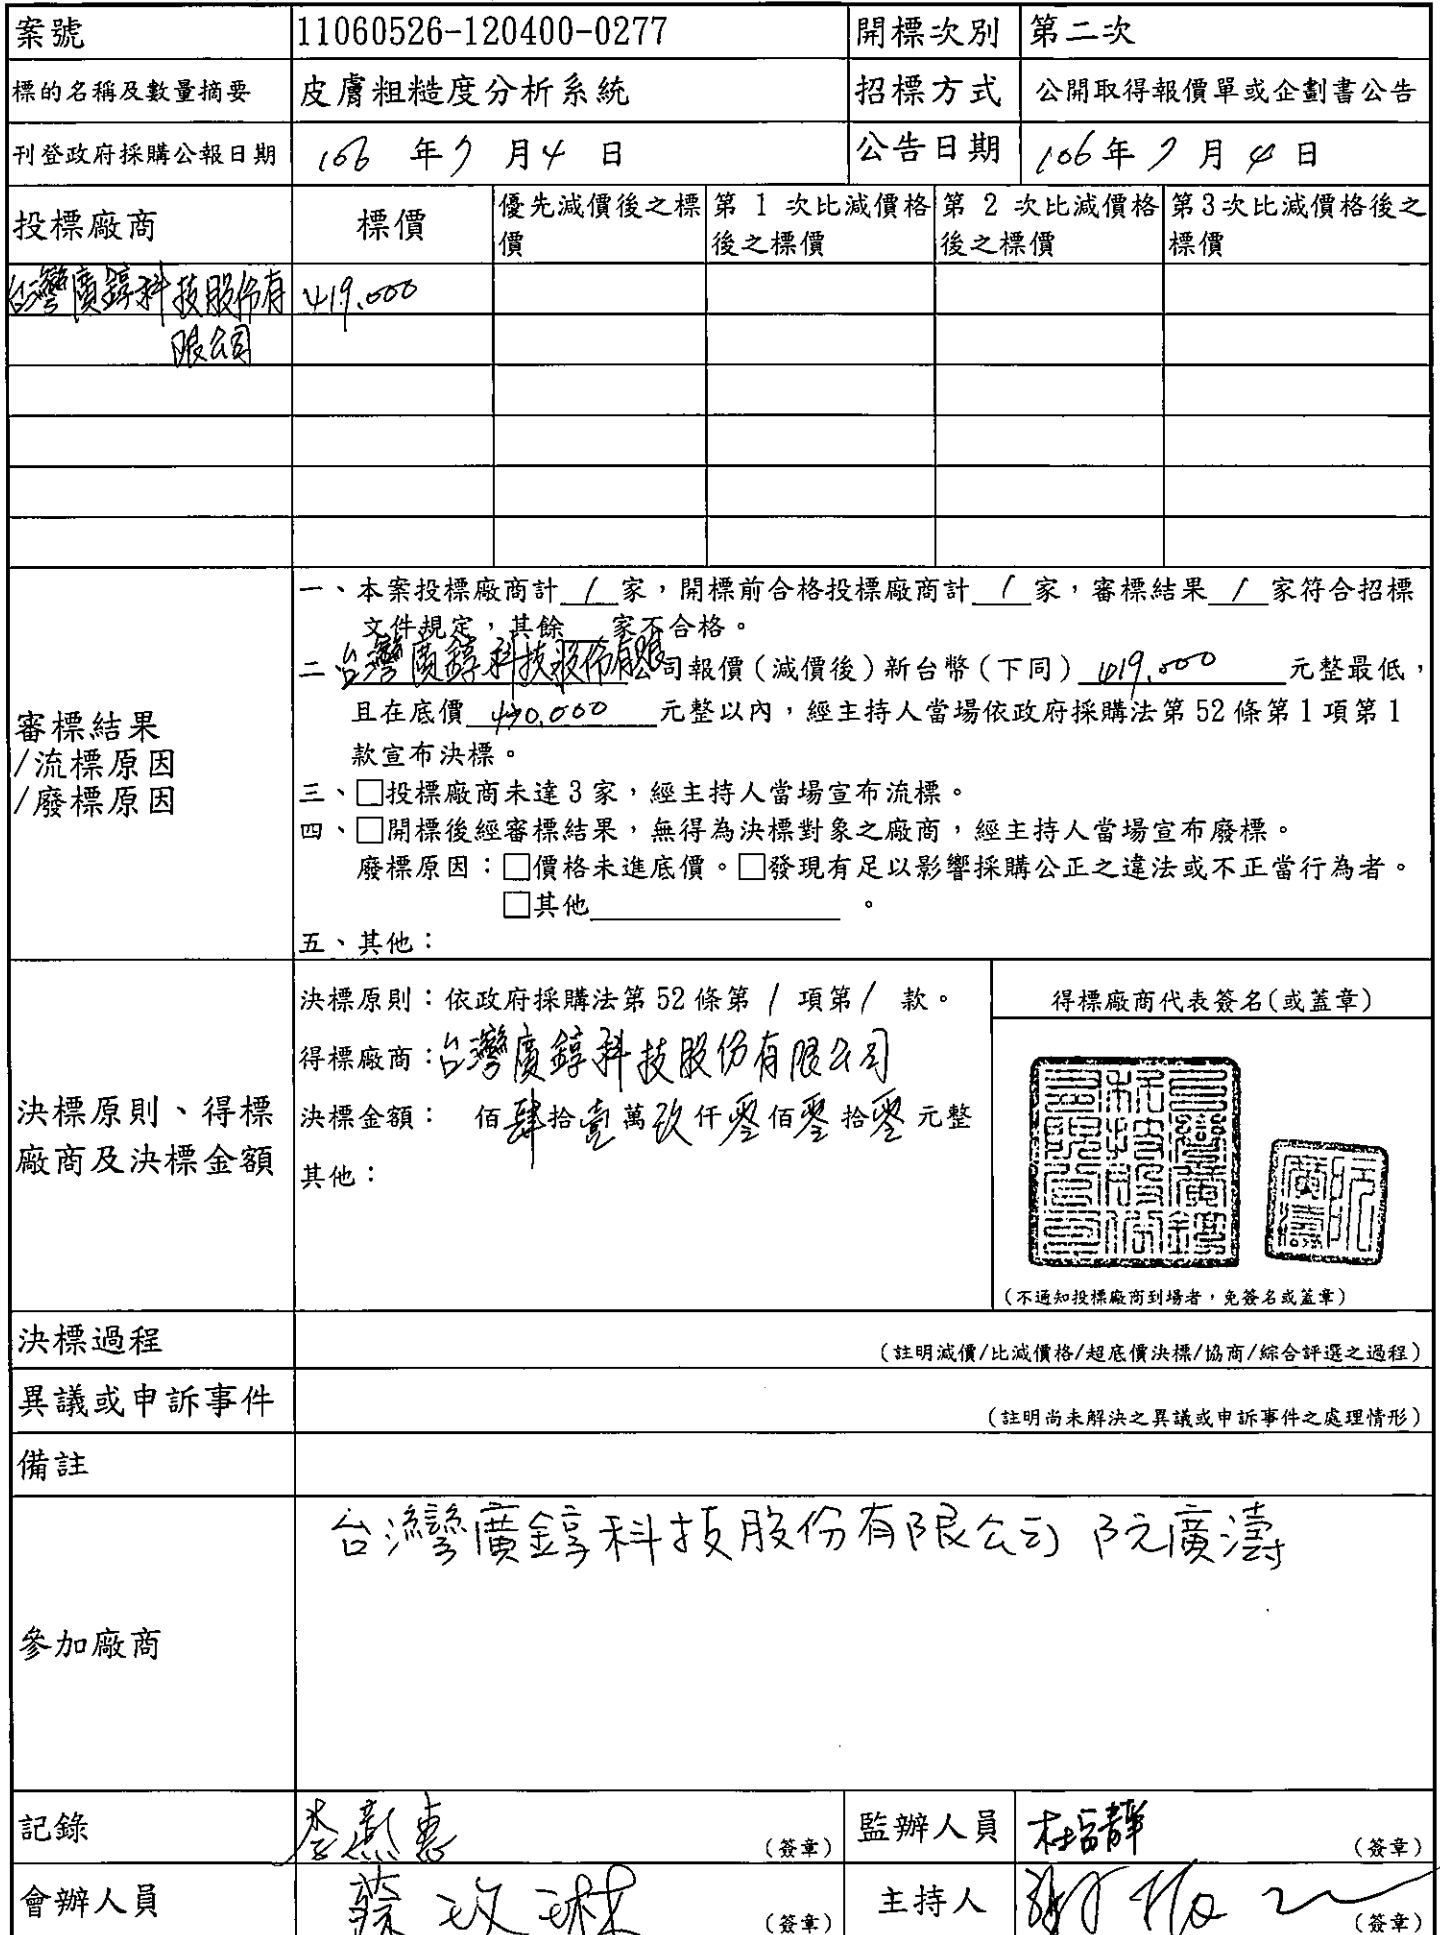 案號 11060526-120400-0277 開標次別 第二次
標的名稱及數量摘要 皮膚粗糙度分析系統 招標方式 公開取得報價單或企劃書公告
刊登政府採購公報日期 106 年 7 月 4 日 公告日期 106 年 7 月 4 日
投標廠商 標價 優先減價後之標價 第 1 次比減價格後之標價 第 2 次比減價格後之標價 第3次比減價格後之標價
台灣廣錞科技股份有 419,000
限公司
審標結果
/流標原因
/廢標原因
一、本案投標廠商計 1 家，開標前合格投標廠商計 1 家，審標結果 1 家符合招標
文件規定，其餘 家不合格。
二 台灣廣錞科技股份有限公司報價(減價後)新台幣(下同) 419,000 元整最低，
且在底價 元整以內，經主持人當場依政府採購法第 52 條第 1 項第 1
款宣布決標。
三、□投標廠商未達 3 家，經主持人當場宣布流標。
四、□開標後經審標結果，無得為決標對象之廠商，經主持人當場宣布廢標。
廢標原因：□價格未進底價。□發現有足以影響採購公正之違法或不正當行為者。
□其他 。
五、其他：
決標原則、得標
廠商及決標金額
決標原則：依政府採購法第 52 條第 1 項第 1 款。
得標廠商：台灣廣錞科技股份有限公司
決標金額： 佰肆拾壹萬玖仟零佰零拾零元整
其他：
得標廠商代表簽名(或蓋章)
(不通知投標廠商到場者，免簽名或蓋章)
決標過程 (註明減價/比減價格/超底價決標/協商/綜合評選之過程)
異議或申訴事件 (註明尚未解決之異議或申訴事件之處理情形)
備註
參加廠商 台灣廣錞科技股份有限公司 阮廣濤
記錄 (簽章) 監辦人員 (簽章)
會辦人員 蔡玫琳 (簽章) 主持人 (簽章)